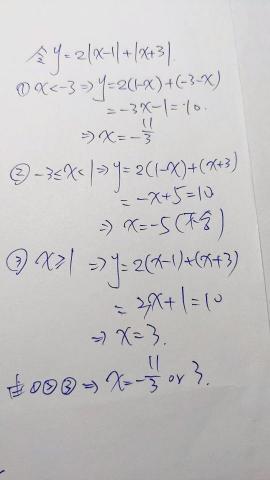 令 y=2|x-1|+|x+3|.
① x<-3 ⇒ y=2(1-x)+(-3-x)
=-3x-1=10.
⇒ x=-11/3
② -3≤x<1 ⇒ y=2(1-x)+(x+3)
=-x+5=10
⇒ x=-5(不合)
③ x≥1 ⇒ y=2(x-1)+(x+3)
=3x+1=10
⇒ x=3.
由①②③ ⇒ x=-11/3 or 3.